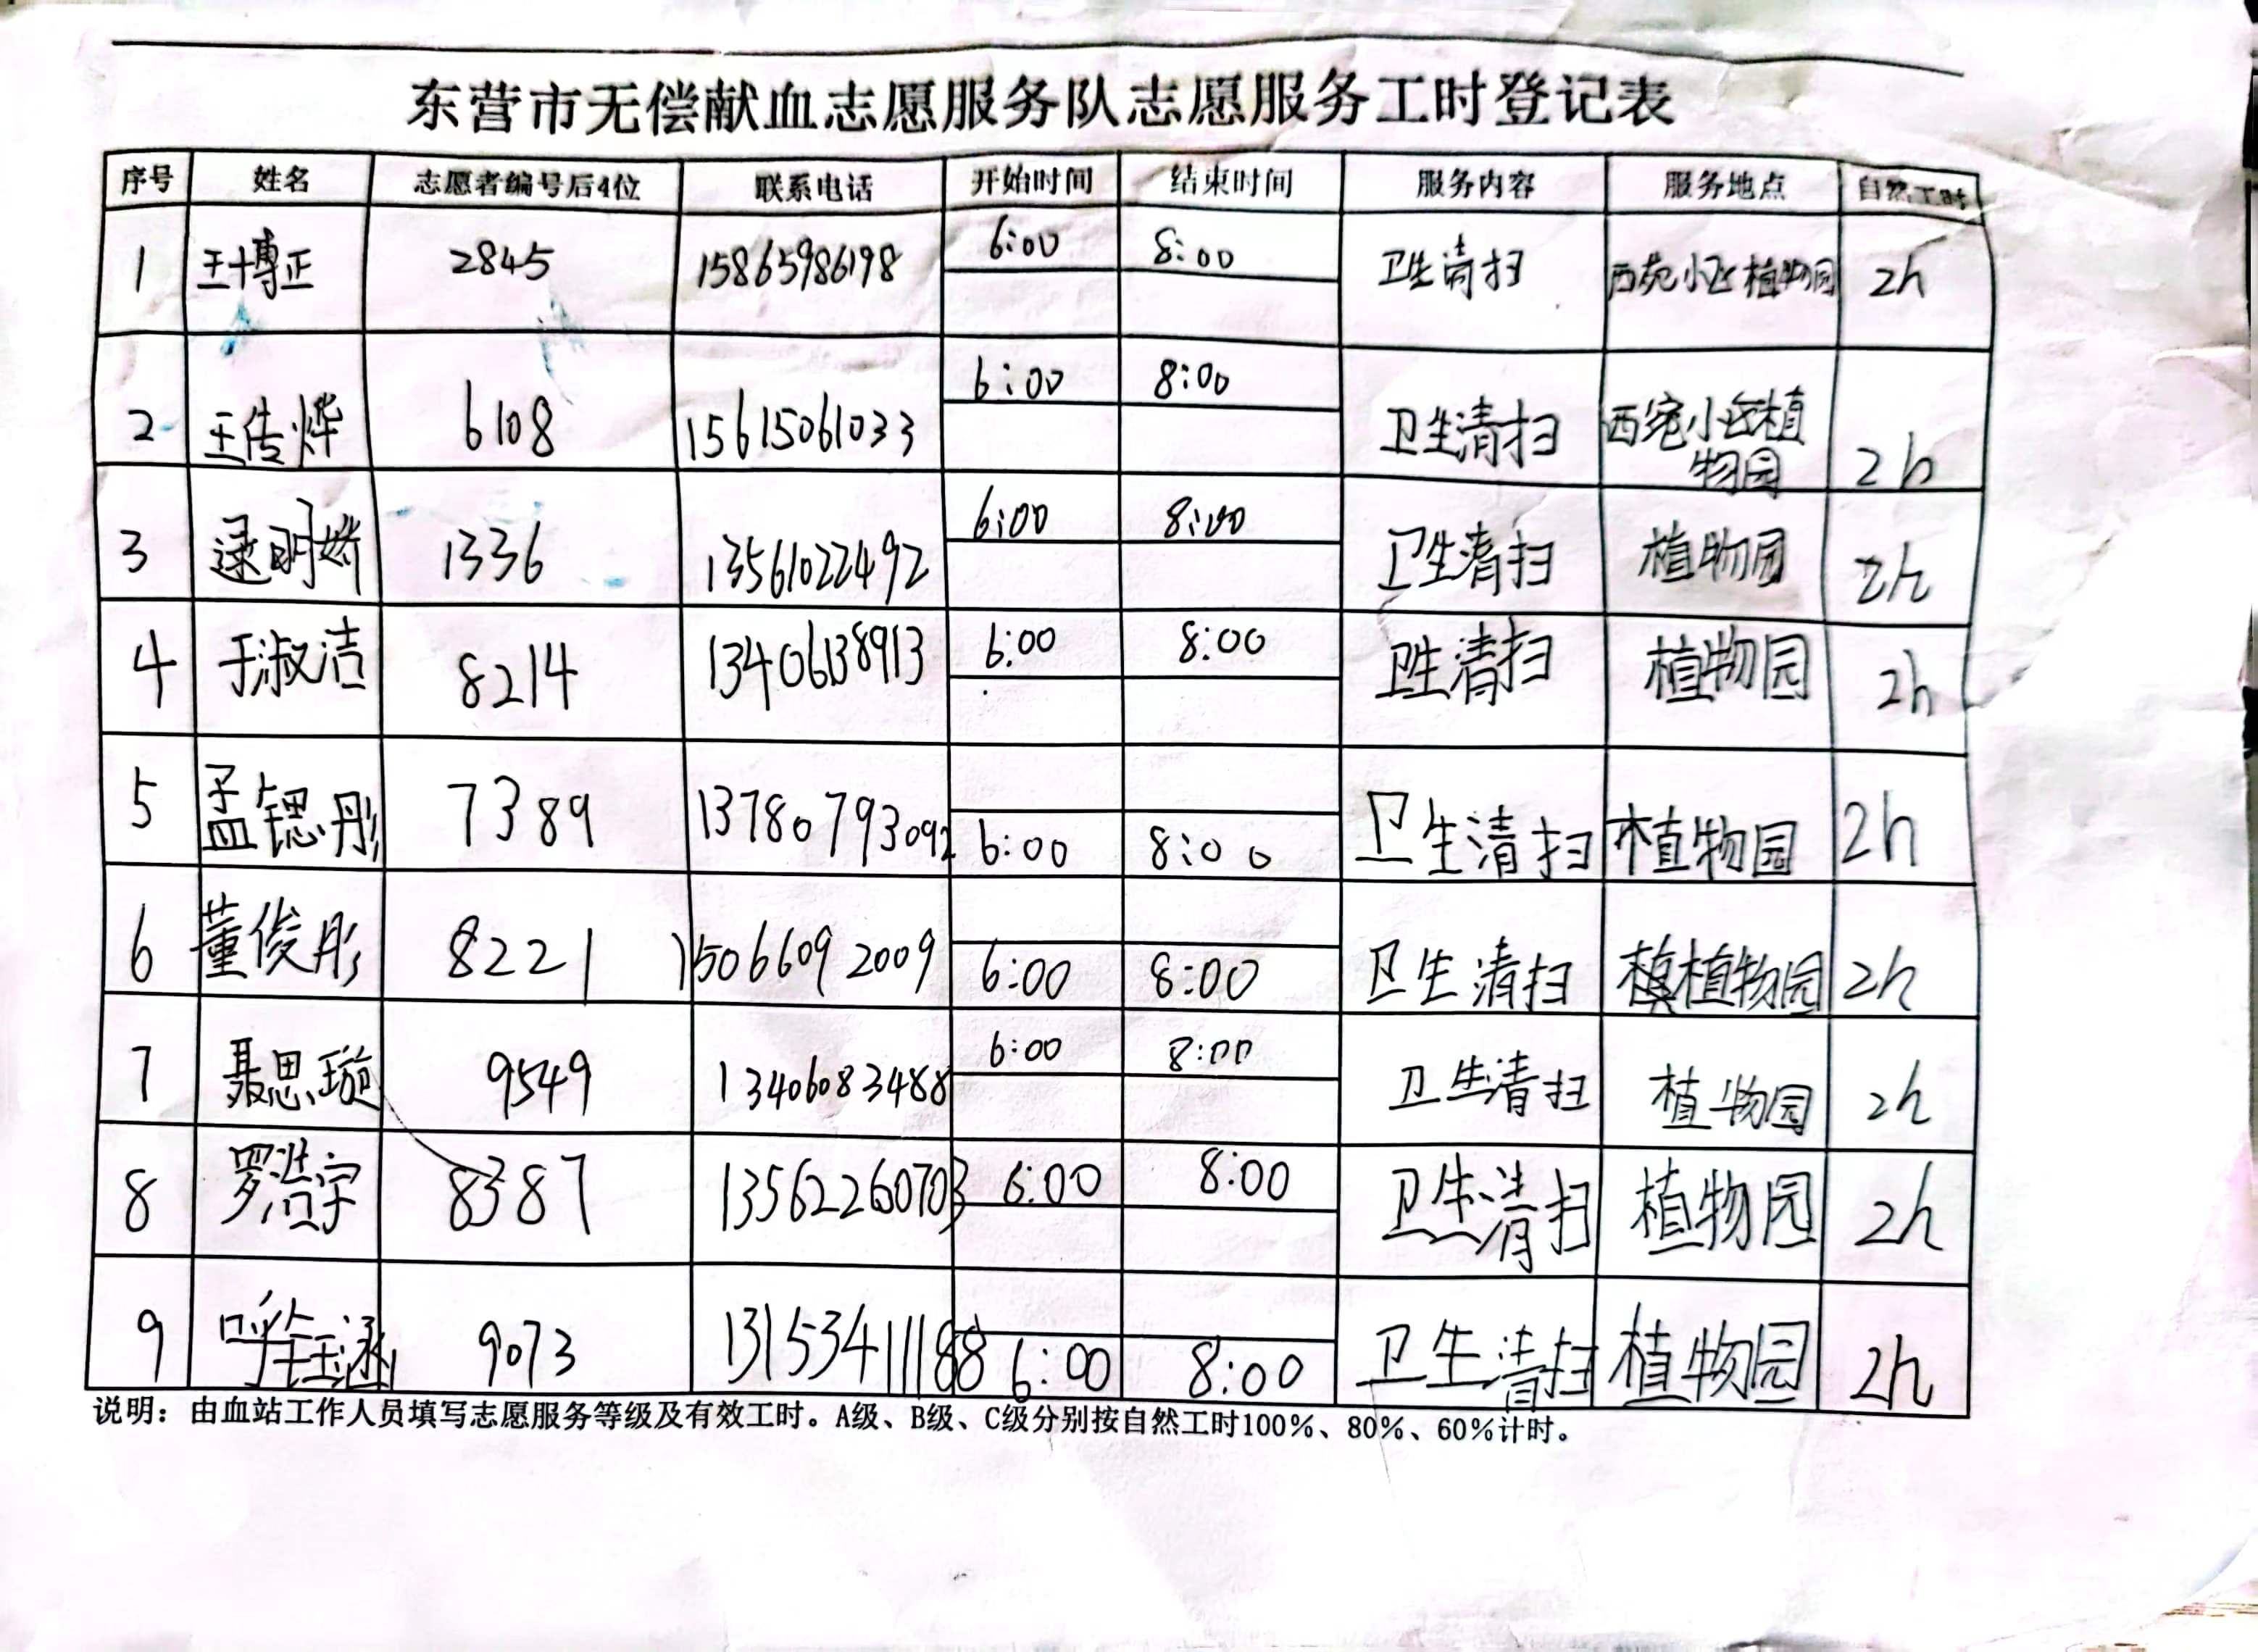 东营市无偿献血志愿服务队志愿服务工时登记表
序号 姓名 志愿者编号后4位 联系电话 开始时间 结束时间 服务内容 服务地点 自然工时
1 王博正 2845 15865986198 6:00 8:00 卫生清扫 西苑小区植物园 2h
2 王传烨 6108 15615061033 6:00 8:00 卫生清扫 西苑小区植物园 2h
3 逯明娇 1336 13561022492 6:00 8:00 卫生清扫 植物园 2h
4 于淑洁 8214 13406138913 6:00 8:00 卫生清扫 植物园 2h
5 孟锶彤 7389 13780793092 6:00 8:00 卫生清扫 植物园 2h
6 董俊彤 8221 15066092009 6:00 8:00 卫生清扫 植物园 2h
7 聂思璇 9549 13406083488 6:00 8:00 卫生清扫 植物园 2h
8 罗浩宇 8387 13562260703 6:00 8:00 卫生清扫 植物园 2h
9 呼钰涵 9073 13153411188 6:00 8:00 卫生清扫 植物园 2h
说明：由血站工作人员填写志愿服务等级及有效工时。A级、B级、C级分别按自然工时100%、80%、60%计时。